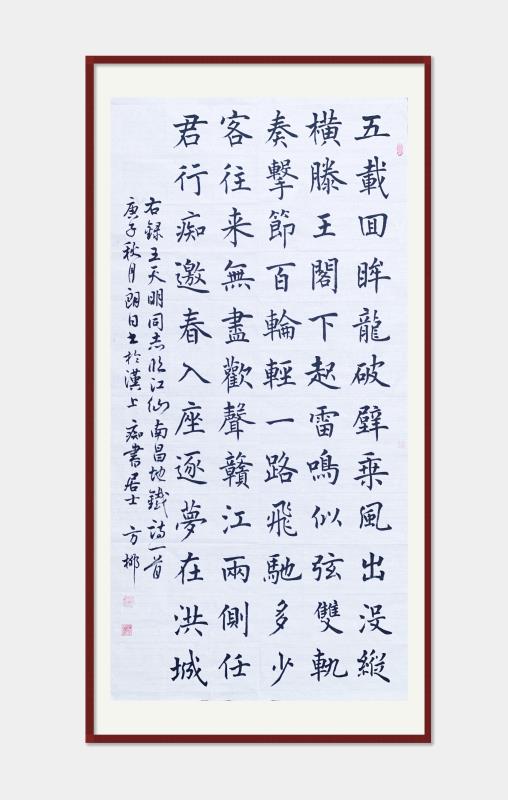 五載回眸龍破壁乘風出沒縱
橫滕王閣下起雷鳴似弦雙軌
奏擊節百輪輕一路飛馳多少
客往来無盡歡聲贛江兩側任
君行痴邀春入座逐夢在洪城
右録王天明同志臨江仙南昌地鐵詩一首
庚子秋月朗日书於漢上痴書居士方